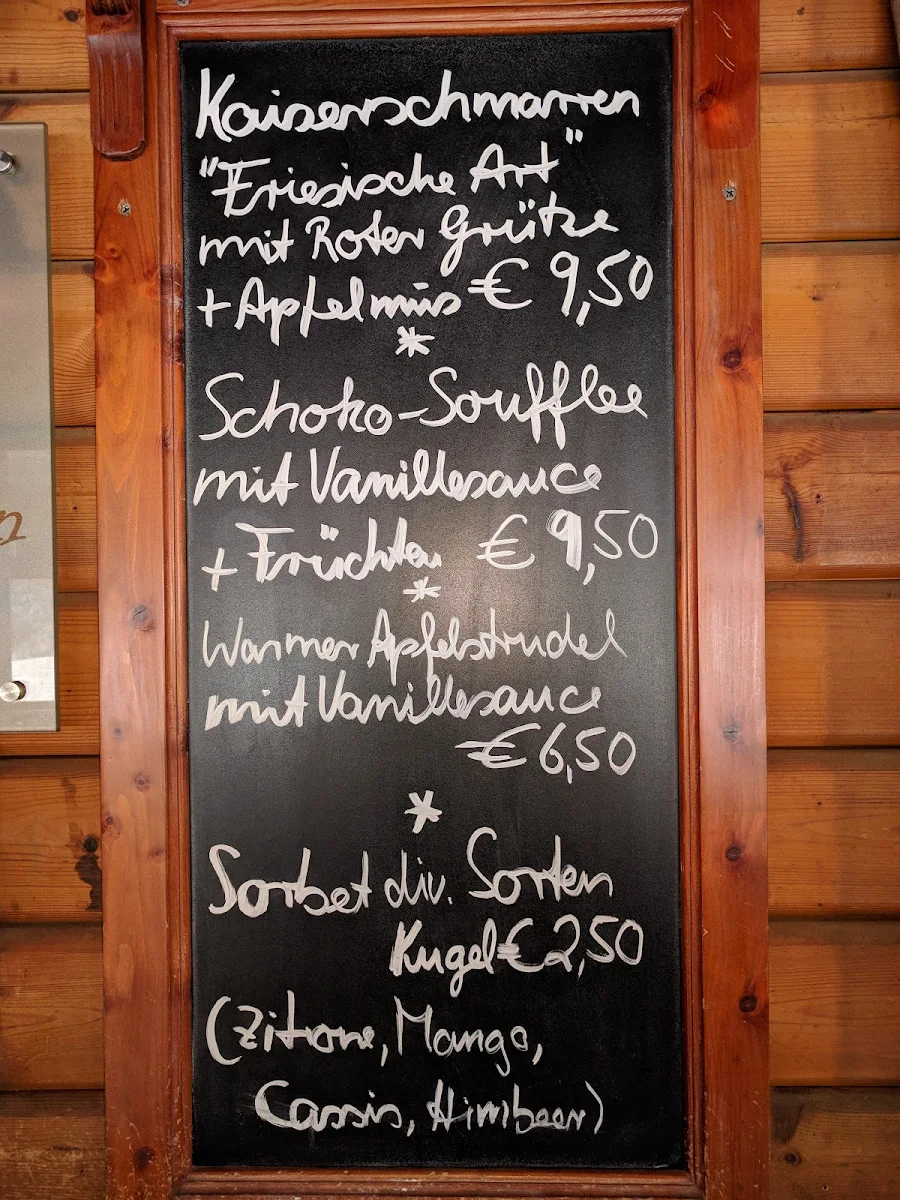 Kaiserschmarren
"Friesische Art"
mit Roter Grütze
+ Apfelmus € 9,50
*
Schoko-Soufflee
mit Vanillesauce
+ Früchten € 9,50
*
Warmer Apfelstrudel
mit Vanillesauce
€ 6,50
*
Sorbet div. Sorten
Kugel € 2,50
(Zitrone, Mango,
Cassis, Himbeer)